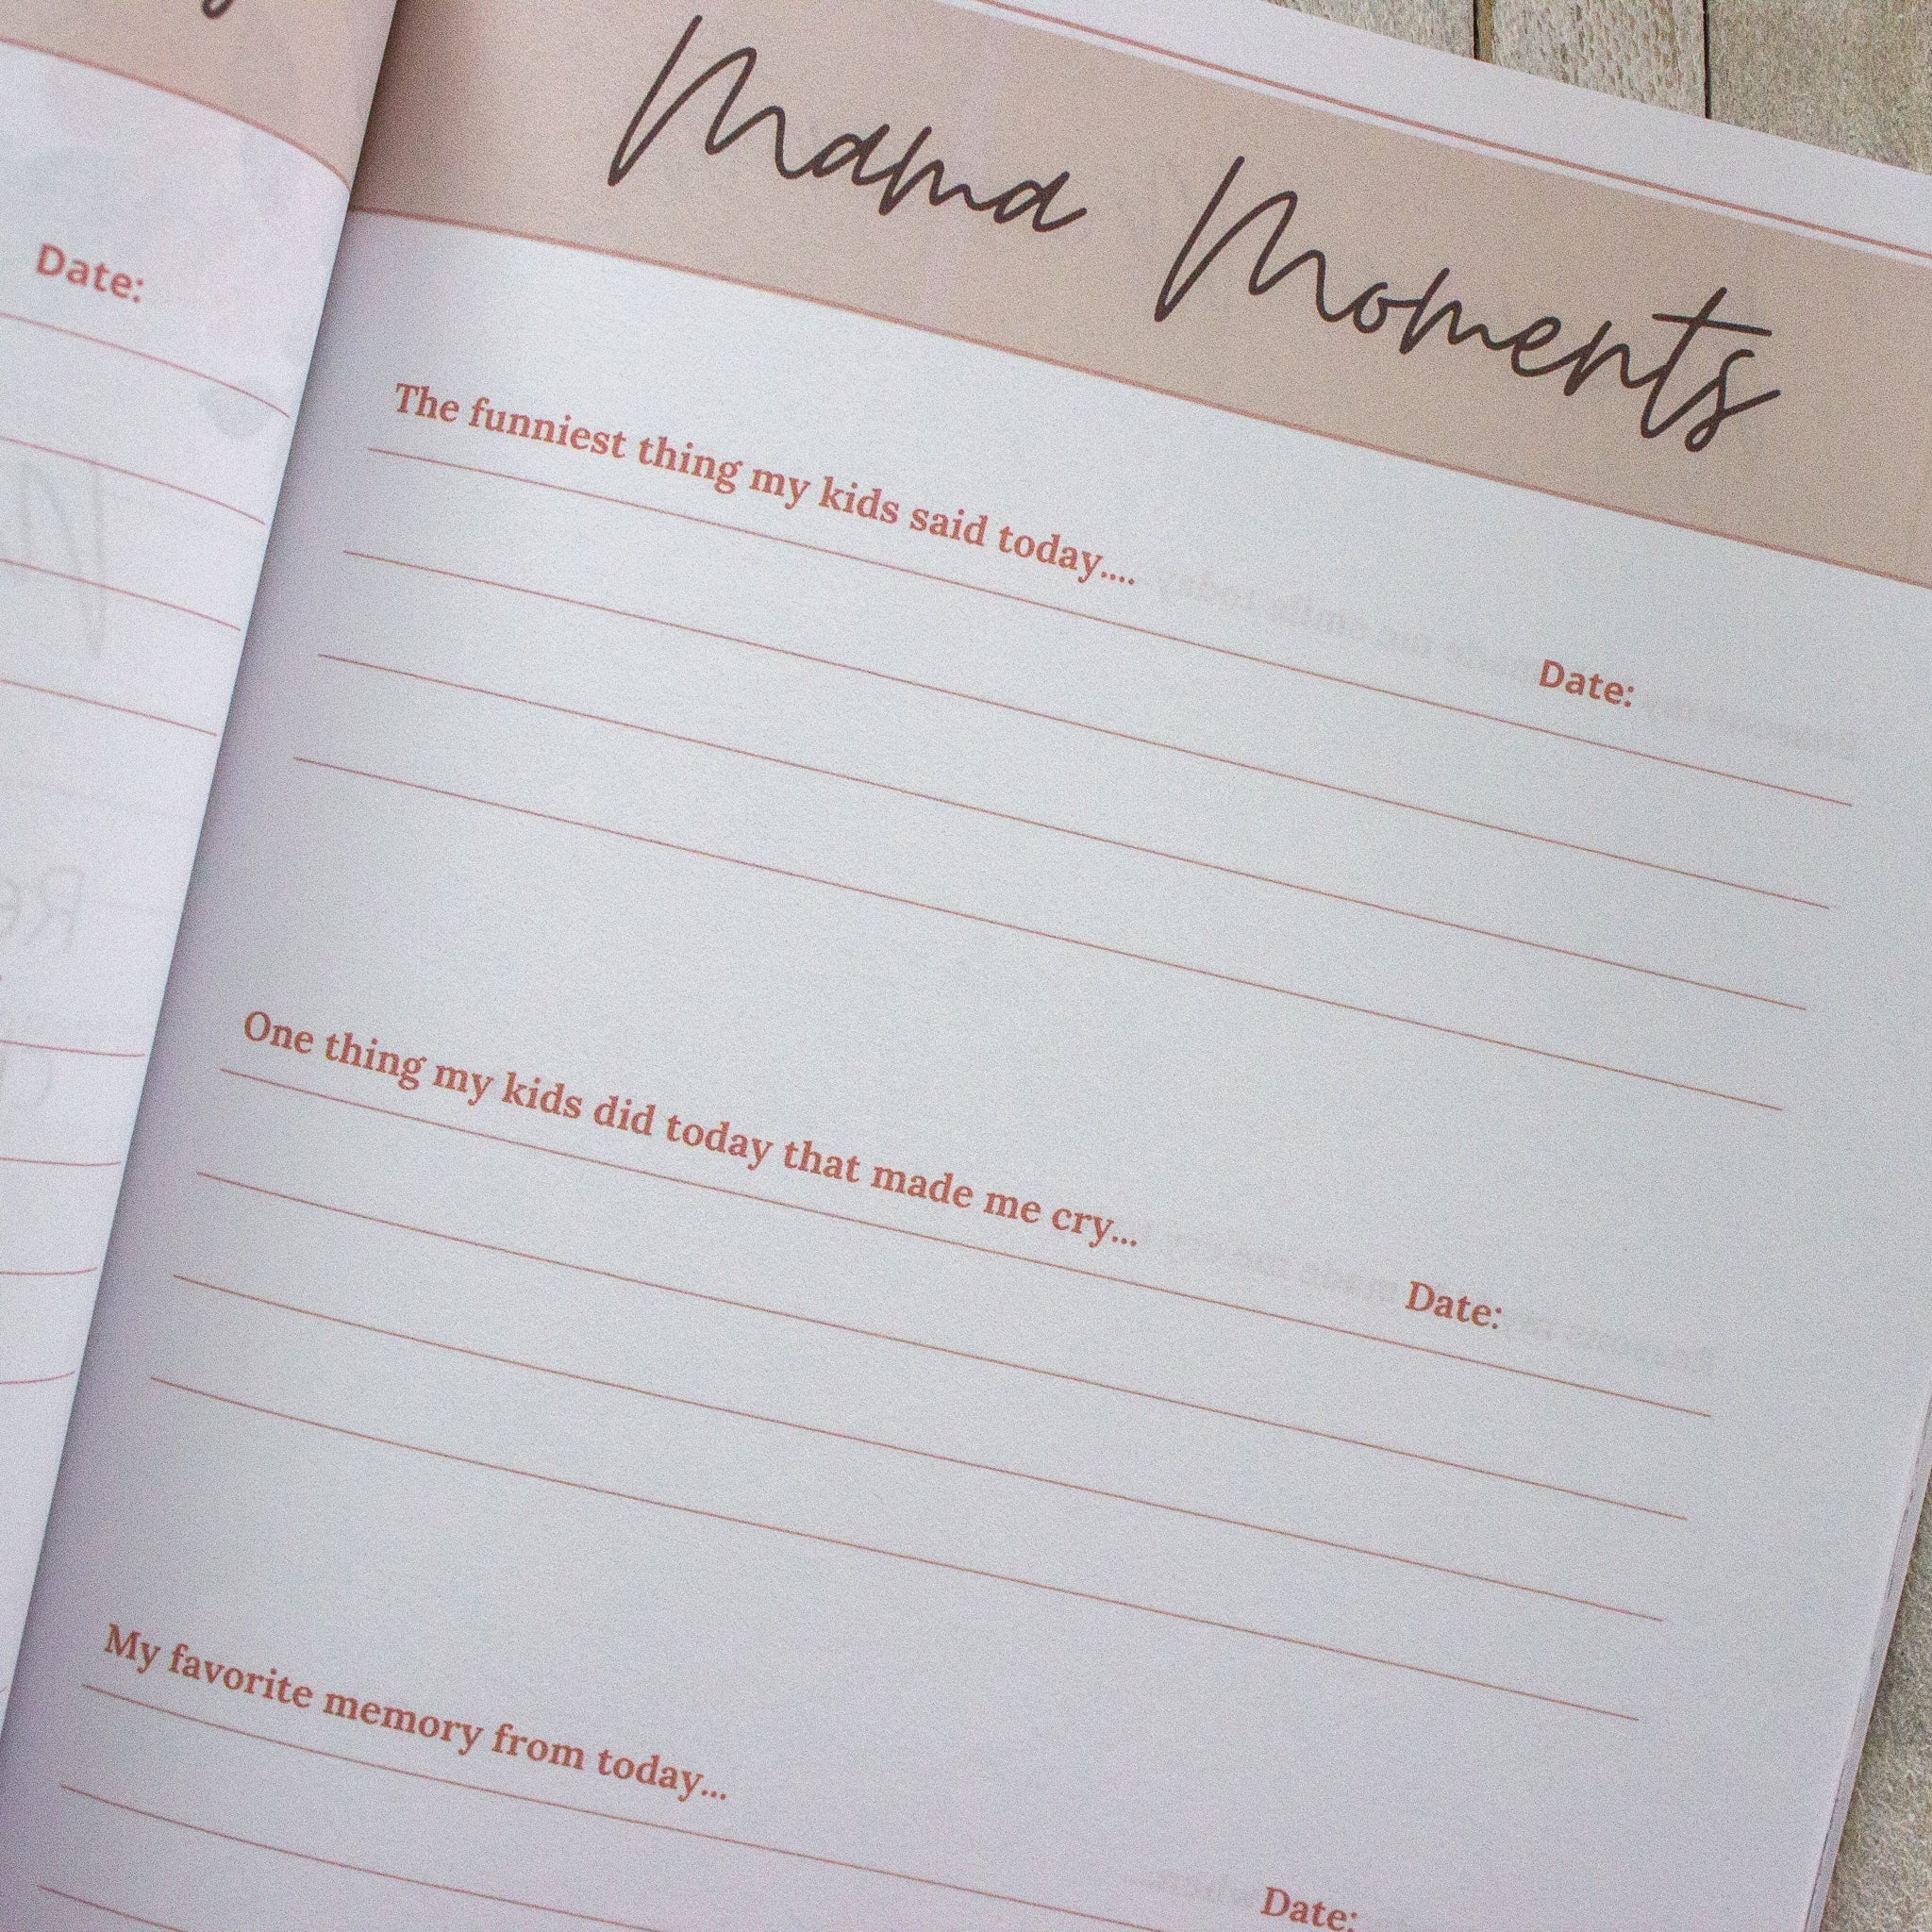 Date:
Mama Moments
The funniest thing my kids said today....
Date:
One thing my kids did today that made me cry...
Date:
My favorite memory from today...
Date: